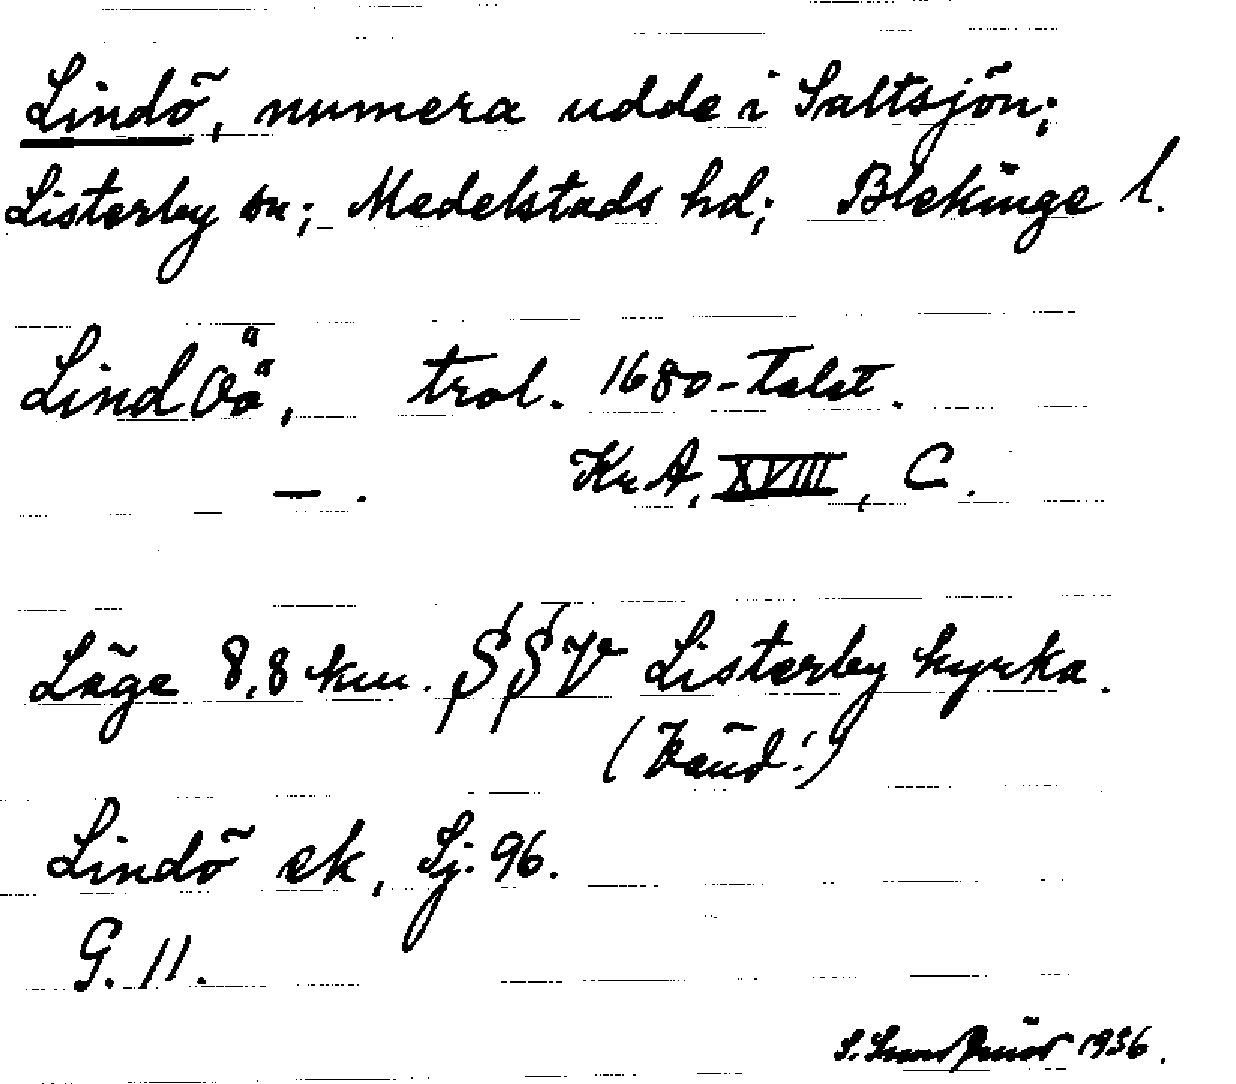 Lindö, numera udde i Saltsjön;
Listerby sn; Medelstads hd; Blekinge l.
Lind Öä, trol. 1680-talet.
— . KrA, XVIII, C.
Läge 8,8 km. SSV Listerby kyrka.
(känd!)
Lindö ek, Sj. 96.
G. 11.
S. 1936.